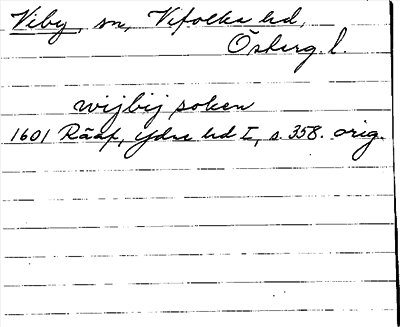 Viby, sn, Vifolka hd,
Östերg. l.
wijbij soken
1601 Rääf, Ydre hd I, s. 358. orig.